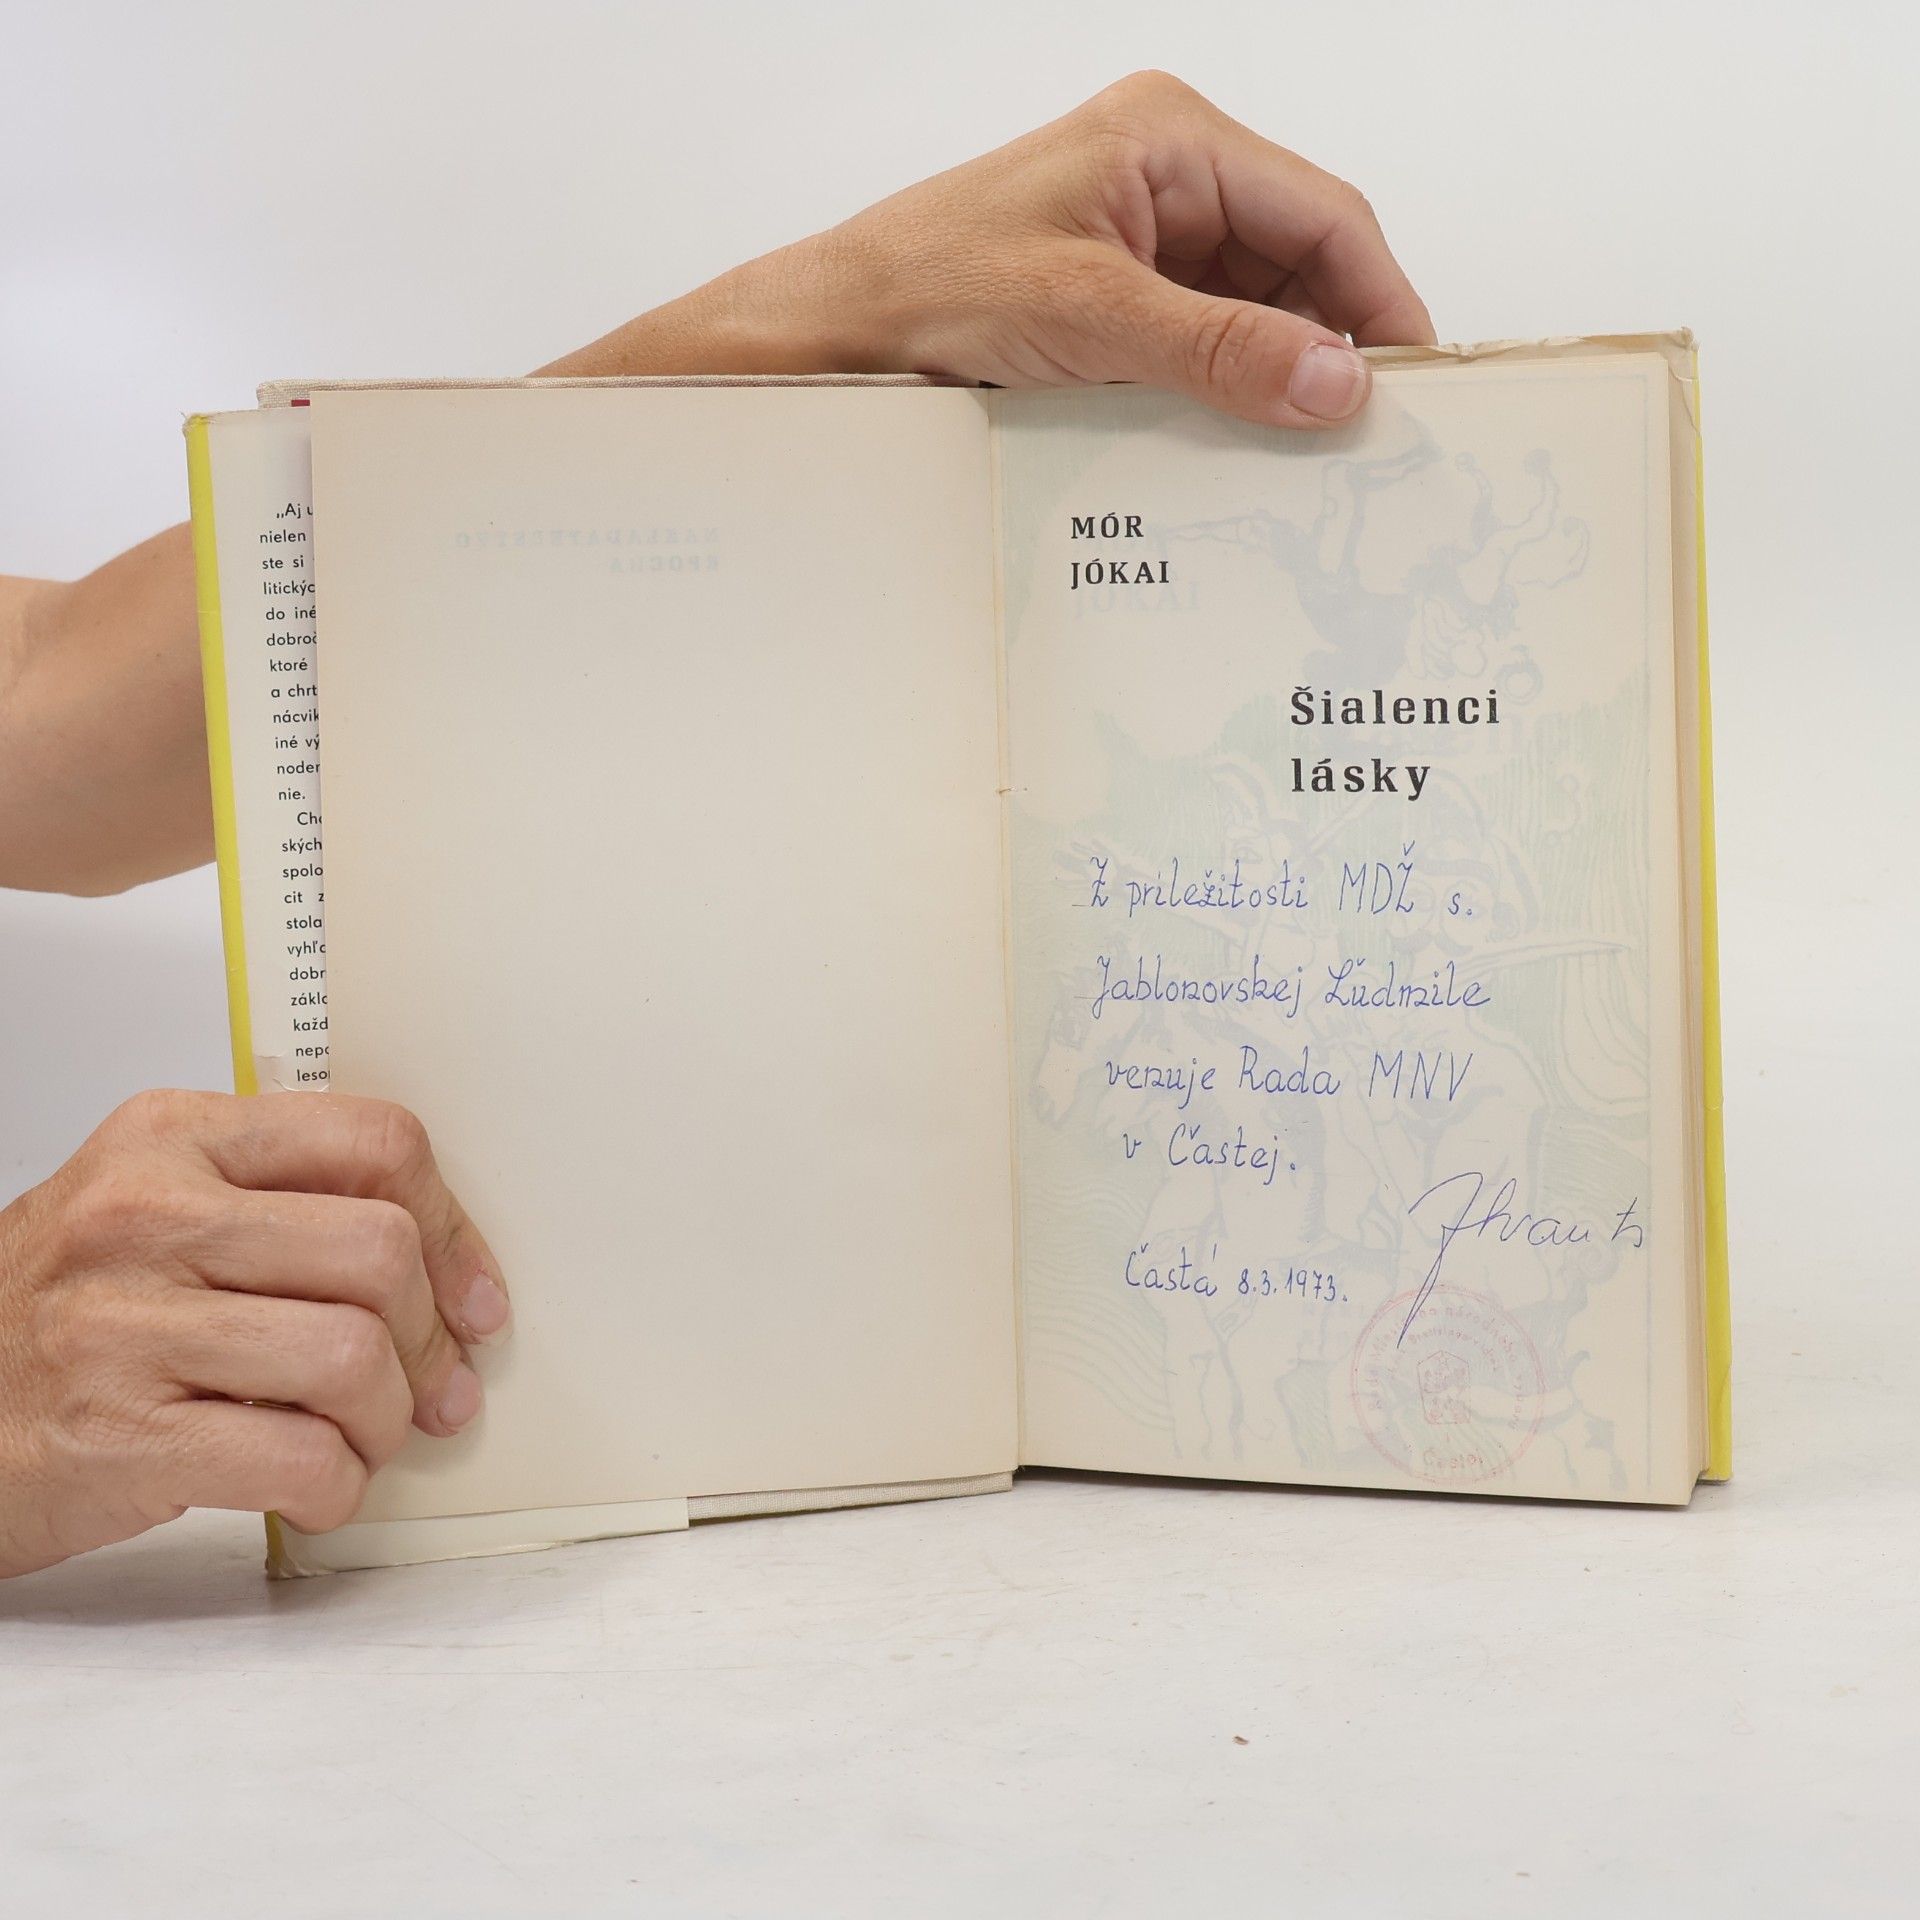 „Aj u
nielen
ste si
litických
do iné
dobroč
ktoré
a chrt
nácvik
iné vý
noder
nie.
Cho
ských
spolo
cit z
stola
vyhľa
dobr
zákla
každ
nepo
leso
NAKLADATEĽSTVO
EPOCHA
MÓR
JÓKAI
Šialenci
lásky
Z príležitosti MDŽ s.
Jablonovskej Ľudmile
venuje Rada MNV
v Častej.
Častá 8.3.1973.
Častej